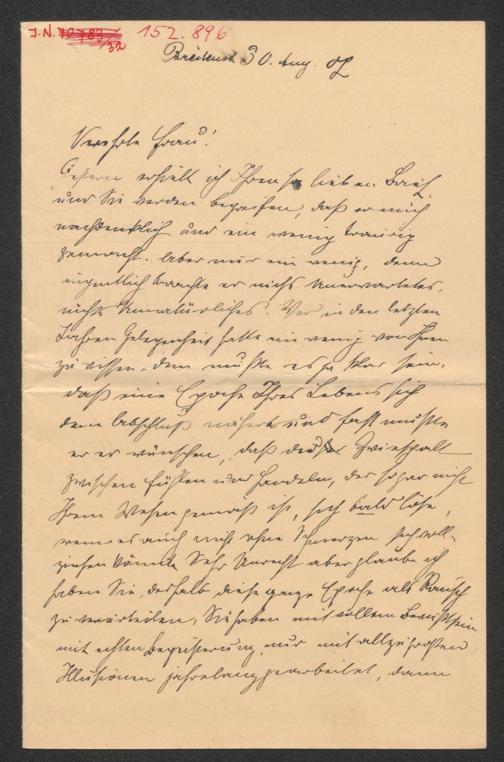 J.N. 70783/32 152.896
Breitenst. 30. Aug. 02
Verehrte Frau!
Gestern erhielt ich Ihren so lieben Brief
und Sie werden begreifen, daß er mich
nachdenklich und ein wenig traurig
gemacht. Aber nur ein wenig, denn
eigentlich brachte er nichts Unerwartetes,
nichts Unnatürliches. Wer in den letzten
Jahren Gelegenheit hatte ein wenig von Ihnen
zu wissen, dem mußte es ja klar sein,
daß eine Epoche Ihres Lebens sich
dem Abschluß näherte und fast mußte
er er wünschen, daß der Zwiespalt
zwischen Fühlen und Handeln, der so gar nicht
Ihrem Wesen gemäß ist, sich bald löse,
wenn es auch nicht ohne Schmerzen sich voll-
ziehen könnte. Sehr Unrecht aber glaube ich
haben Sie, deshalb diese ganze Epoche als Rausch
zu verurteilen. Sie haben mit vollem Bewußtsein
mit echter Begeisterung, nur mit allzugroßen
Illusionen jahrelang gearbeitet, dann